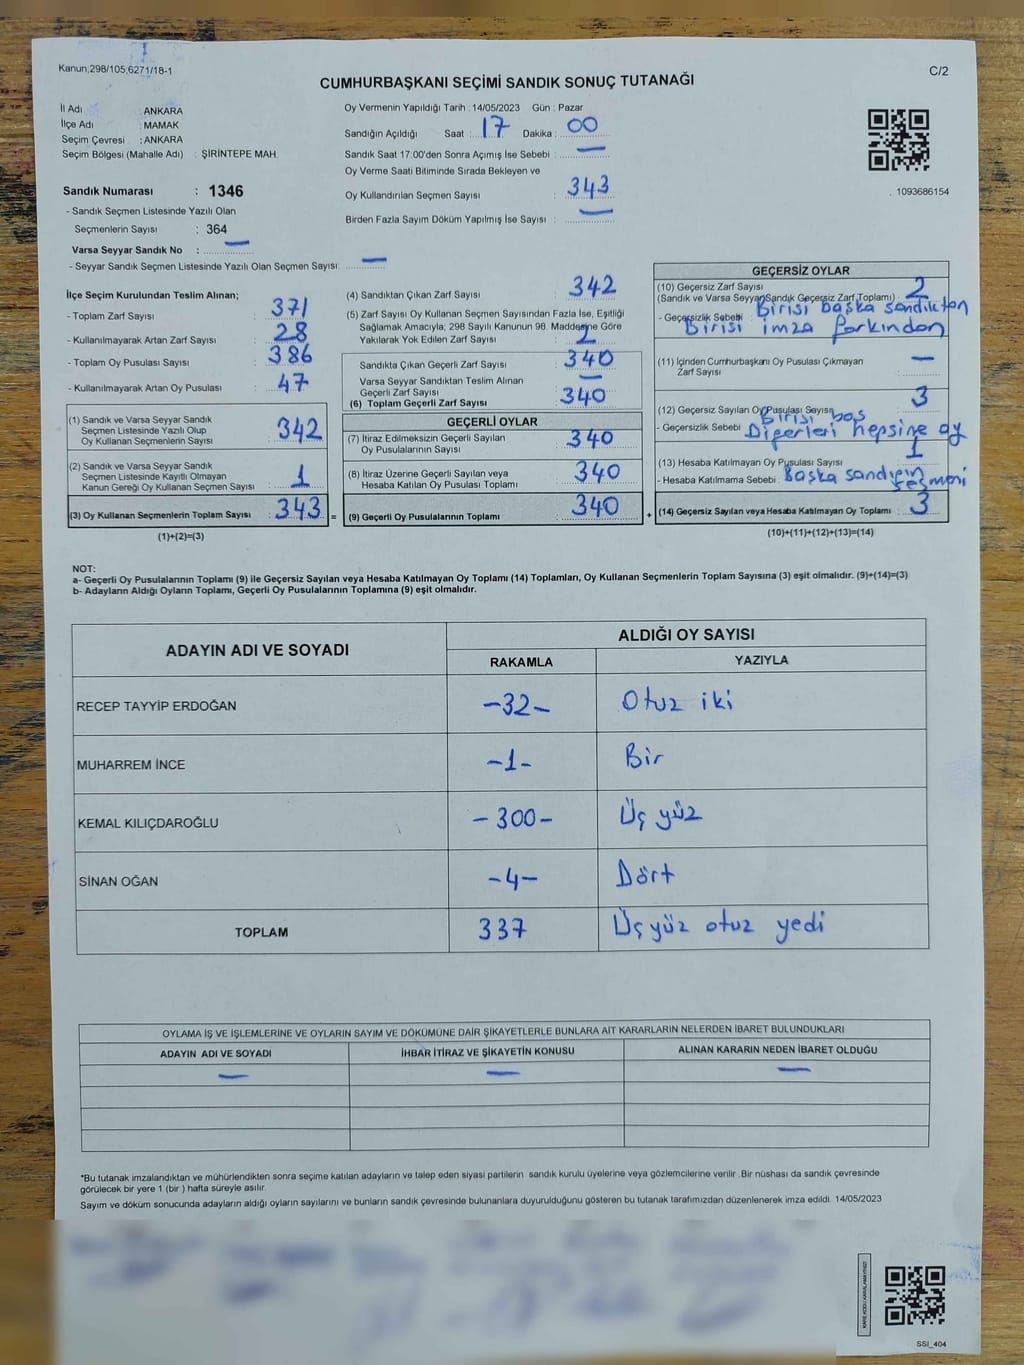 Kanun;298/105;6271/18-1
C/2
CUMHURBAŞKANI SEÇİMİ SANDIK SONUÇ TUTANAĞI
İl Adı : ANKARA
İlçe Adı : MAMAK
Seçim Çevresi : ANKARA
Seçim Bölgesi (Mahalle Adı) : ŞİRİNTEPE MAH.
Sandık Numarası : 1346
- Sandık Seçmen Listesinde Yazılı Olan
Seçmenlerin Sayısı : 364
Varsa Seyyar Sandık No : —
- Seyyar Sandık Seçmen Listesinde Yazılı Olan Seçmen Sayısı: —
Oy Vermenin Yapıldığı Tarih : 14/05/2023 Gün : Pazar
Sandığın Açıldığı Saat : 17 Dakika : 00
Sandık Saat 17:00'den Sonra Açımış İse Sebebi : —
Oy Verme Saati Bitiminde Sırada Bekleyen ve
Oy Kullandırılan Seçmen Sayısı : 343
Birden Fazla Sayım Döküm Yapılmış İse Sayısı : —
1093686154
İlçe Seçim Kurulundan Teslim Alınan;
- Toplam Zarf Sayısı : 371
- Kullanılmayarak Artan Zarf Sayısı : 28
- Toplam Oy Pusulası Sayısı : 386
- Kullanılmayarak Artan Oy Pusulası : 47
(1) Sandık ve Varsa Seyyar Sandık
Seçmen Listesinde Yazılı Olup
Oy Kullanan Seçmenlerin Sayısı : 342
(2) Sandık ve Varsa Seyyar Sandık
Seçmen Listesinde Kayıtlı Olmayan
Kanun Gereği Oy Kullanan Seçmen Sayısı : 1
(3) Oy Kullanan Seçmenlerin Toplam Sayısı : 343 =
(1)+(2)=(3)
(4) Sandıktan Çıkan Zarf Sayısı : 342
(5) Zarf Sayısı Oy Kullanan Seçmen Sayısından Fazla İse, Eşitliği
Sağlamak Amacıyla; 298 Sayılı Kanunun 98. Maddesine Göre
Yakılarak Yok Edilen Zarf Sayısı : 2
Sandıkta Çıkan Geçerli Zarf Sayısı : 340
Varsa Seyyar Sandıktan Teslim Alınan
Geçerli Zarf Sayısı : —
(6) Toplam Geçerli Zarf Sayısı : 340
GEÇERLİ OYLAR
(7) İtiraz Edilmeksizin Geçerli Sayılan
Oy Pusulalarının Sayısı : 340
(8) İtiraz Üzerine Geçerli Sayılan veya
Hesaba Katılan Oy Pusulası Toplamı : 340
(9) Geçerli Oy Pusulalarının Toplamı : 340 +
GEÇERSİZ OYLAR
(10) Geçersiz Zarf Sayısı
(Sandık ve Varsa Seyyar Sandık Geçersiz Zarf Toplamı) : 2
- Geçersizlik Sebebi : Birisi başka sandıktan
Birisi imza farkından
(11) İçinden Cumhurbaşkanı Oy Pusulası Çıkmayan
Zarf Sayısı : —
(12) Geçersiz Sayılan Oy Pusulası Sayısı : 3
- Geçersizlik Sebebi : Birisi boş
Diğerleri hepsine oy
(13) Hesaba Katılmayan Oy Pusulası Sayısı : 1
- Hesaba Katılmama Sebebi : Başka sandığın
seçmeni
(14) Geçersiz Sayılan veya Hesaba Katılmayan Oy Toplamı : 3
(10)+(11)+(12)+(13)=(14)
NOT:
a- Geçerli Oy Pusulalarının Toplamı (9) ile Geçersiz Sayılan veya Hesaba Katılmayan Oy Toplamı (14) Toplamları, Oy Kullanan Seçmenlerin Toplam Sayısına (3) eşit olmalıdır. (9)+(14)=(3)
b- Adayların Aldığı Oyların Toplamı, Geçerli Oy Pusulalarının Toplamına (9) eşit olmalıdır.
ADAYIN ADI VE SOYADI
ALDIĞI OY SAYISI
RAKAMLA YAZIYLA
RECEP TAYYİP ERDOĞAN -32- Otuz iki
MUHARREM İNCE -1- Bir
KEMAL KILIÇDAROĞLU -300- Üç yüz
SİNAN OĞAN -4- Dört
TOPLAM 337 Üçyüz otuz yedi
OYLAMA İŞ VE İŞLEMLERİNE VE OYLARIN SAYIM VE DÖKÜMÜNE DAİR ŞİKAYETLERLE BUNLARA AİT KARARLARIN NELERDEN İBARET BULUNDUKLARI
ADAYIN ADI VE SOYADI İHBAR İTİRAZ VE ŞİKAYETİN KONUSU ALINAN KARARIN NEDEN İBARET OLDUĞU
— — —
*Bu tutanak imzalandıktan ve mühürlendikten sonra seçime katılan adayların ve talep eden siyasi partilerin sandık kurulu üyelerine veya gözlemcilerine verilir .Bir nüshası da sandık çevresinde
görülecek bir yere 1 (bir ) hafta süreyle asılır.
Sayım ve döküm sonucunda adayların aldığı oyların sayılarını ve bunların sandık çevresinde bulunanlara duyurulduğunu gösteren bu tutanak tarafımızdan düzenlenerek imza edildi. 14/05/2023
KARE KODU KARALAMAYINIZ!
SSI_404